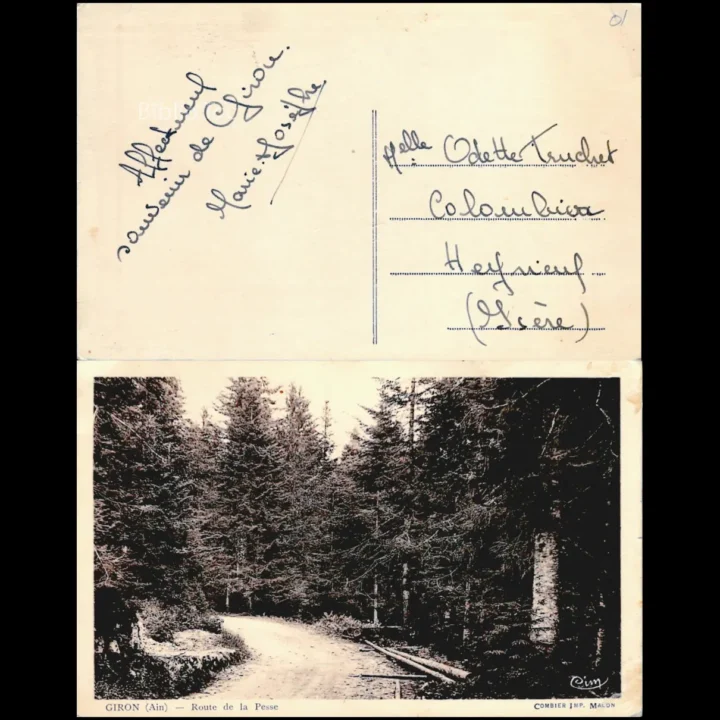 01
Affectueux
souvenir de Giron.
Marie-Josèphe
Melle Odette Truchet
Colombier
Heyrieux
(Isère)
Cim
GIRON (Ain) — Route de la Pesse
COMBIER IMP. MACON